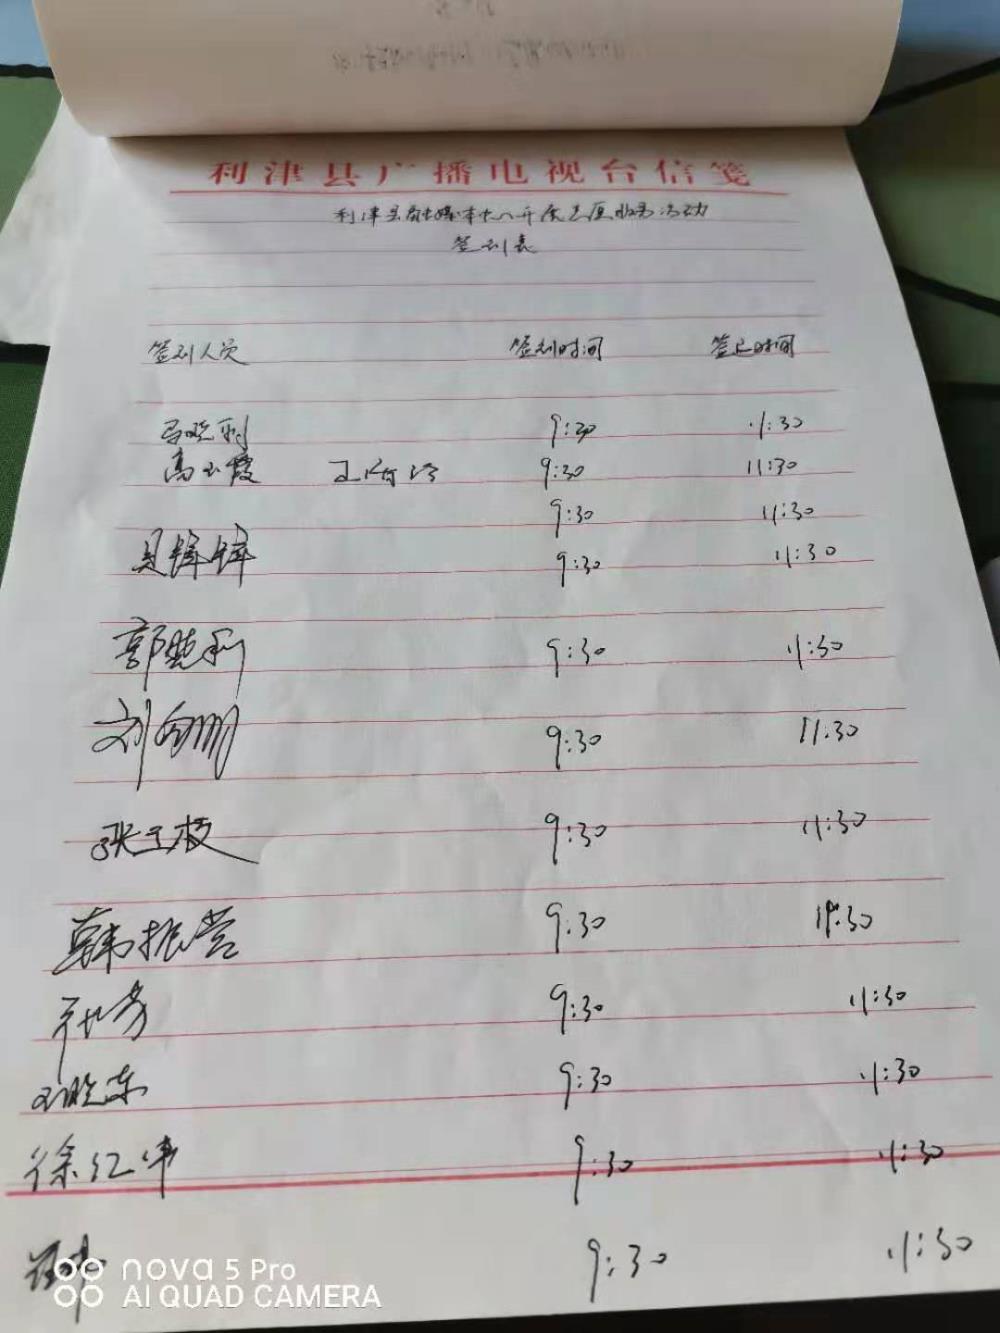 利津县广播电视台信笺
利津县融媒体中心开展志愿服务活动
签到表
签到人员 签到时间 签退时间
马晓利 9:30 11:30
高玉霞 9:30 11:30
9:30 11:30
9:30 11:30
郭 利 9:30 11:30
刘向 9:30 11:30
张玉枝 9:30 11:30
韩振堂 9:30 11:30
芳 9:30 11:30
刘晓东 9:30 11:30
徐红 9:30 11:30
9:30 11:30
nova 5 Pro
AI QUAD CAMERA